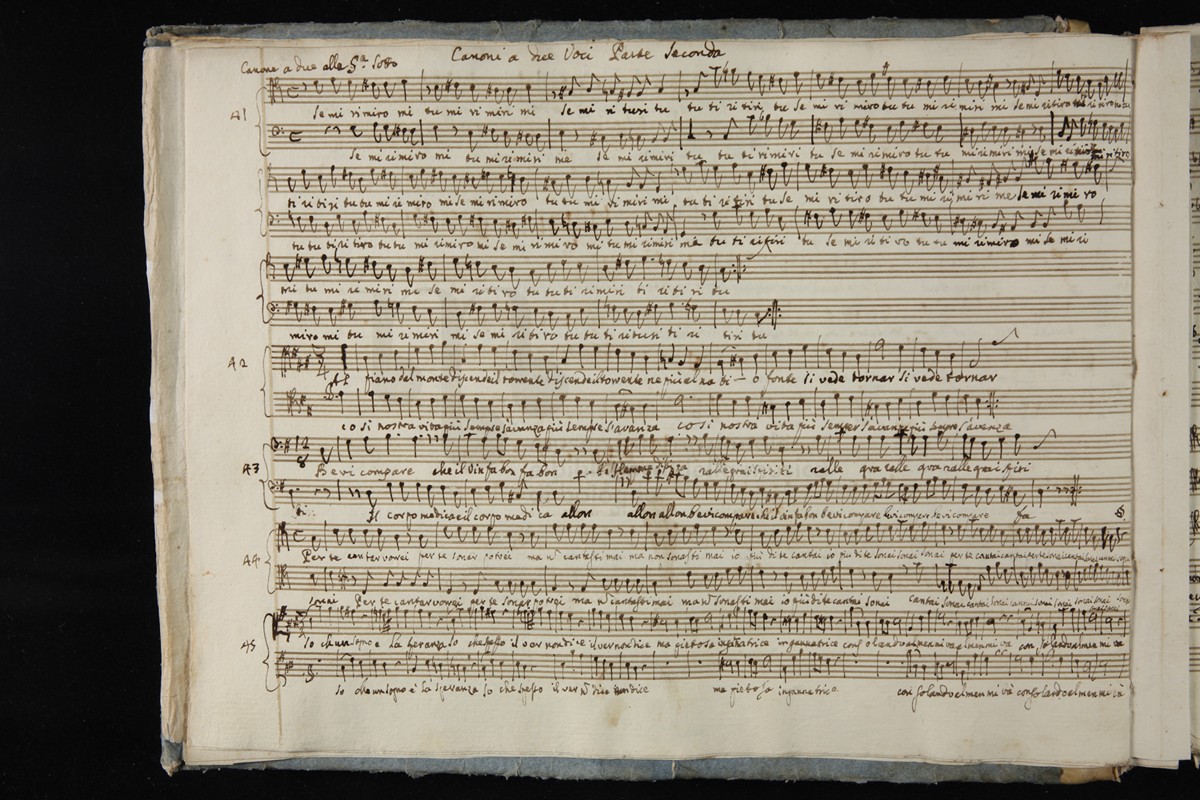 Canoni a due Voci Parte Seconda
Canone a due alla 5.ª Sotto
41
Se mi rimiro mi tu mi rimiri mi Se mi ri turi tu tu ti ri tiri tu se mi ri miro tu tu mi rimiri mi se mi ritiro
Se mi rimiro mi tu mi rimiri me se mi rimiri tu tu ti rimiri tu se mi rimiro tu tu mi rimiri mi se mi
ti ri tiri tu tu mi ri miro mi se mi rimiro tu tu mi rimiri mi tu ti ri tiri tu se mi ri tiro tu tu mi rimiri me se mi rimi ro
tu tu ti ri tiro tu tu mi rimiro mi se mi rimiro mi tu mi rimiri me tu ti ritiri tu se mi ri ti ro tu tu mi rimiro mi se mi ri
mi tu mi rimiri me se mi ri tiro tu tu ti rimiri ti ri ti ri tu
miro mi tu mi rimiri mi se mi ri tiro tu tu ti ri turi ti ri tiri tu
42
Al piano dal monte discende il torrente discende il torrente ne più al na ti - o fonte si vede tornar si vede tornar
co si nostra vita più sempre più sempre s'avanza co si nostra vita più sempre più sempre s'avanza
43
Bevi compare che il Vin fa bon fa bon rallegrai spiriti ralle gra ralle gra rallegrai spiri
ti Il corpo medica e il corpo medi ca allon allon allon bevi compare che il vin fa bon bevi compare bevi compare bevi compare fa
44
Per te cantar vorei per te sonar potrei ma n cantasti mai ma non sonasti mai io più di te cantai io più di te sonai sonai sonai per te cantai
sonai Per te cantar vorei per te sonar potrei ma n cantasti mai ma n sonasti mai io più di te cantai sonai cantai sonai cantai sonai
45
Io ch'un sogno e la speranza Io che spesso il ver non dice il ver non dice ma pietosa ingannatrice ingannatrice consolando almen mi va almen mi va consolando almen mi va
Io ch'un sogno è la speranza Io che spesso il ver n dice non dice ma pietosa ingannatrice consolando almen mi và consolando almen mi và